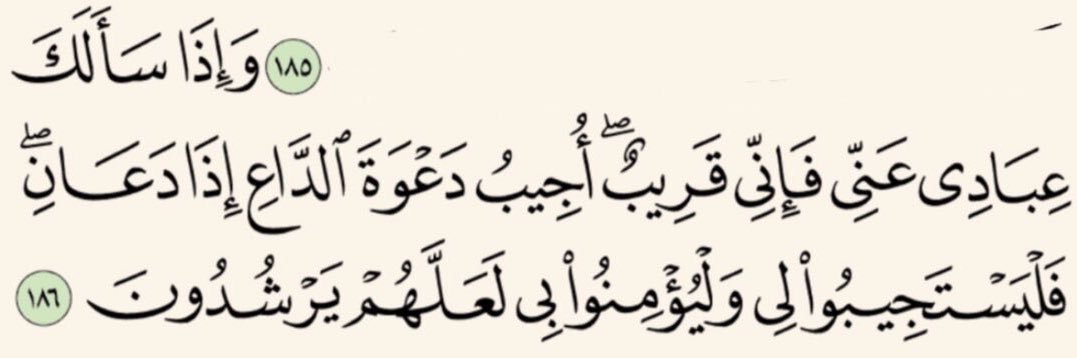 ١٨٥ وَإِذَا سَأَلَكَ
عِبَادِى عَنِّى فَإِنِّى قَرِيبٌۖ أُجِيبُ دَعْوَةَ ٱلدَّاعِ إِذَا دَعَانِۖ
فَلْيَسْتَجِيبُوا۟ لِى وَلْيُؤْمِنُوا۟ بِى لَعَلَّهُمْ يَرْشُدُونَ ١٨٦